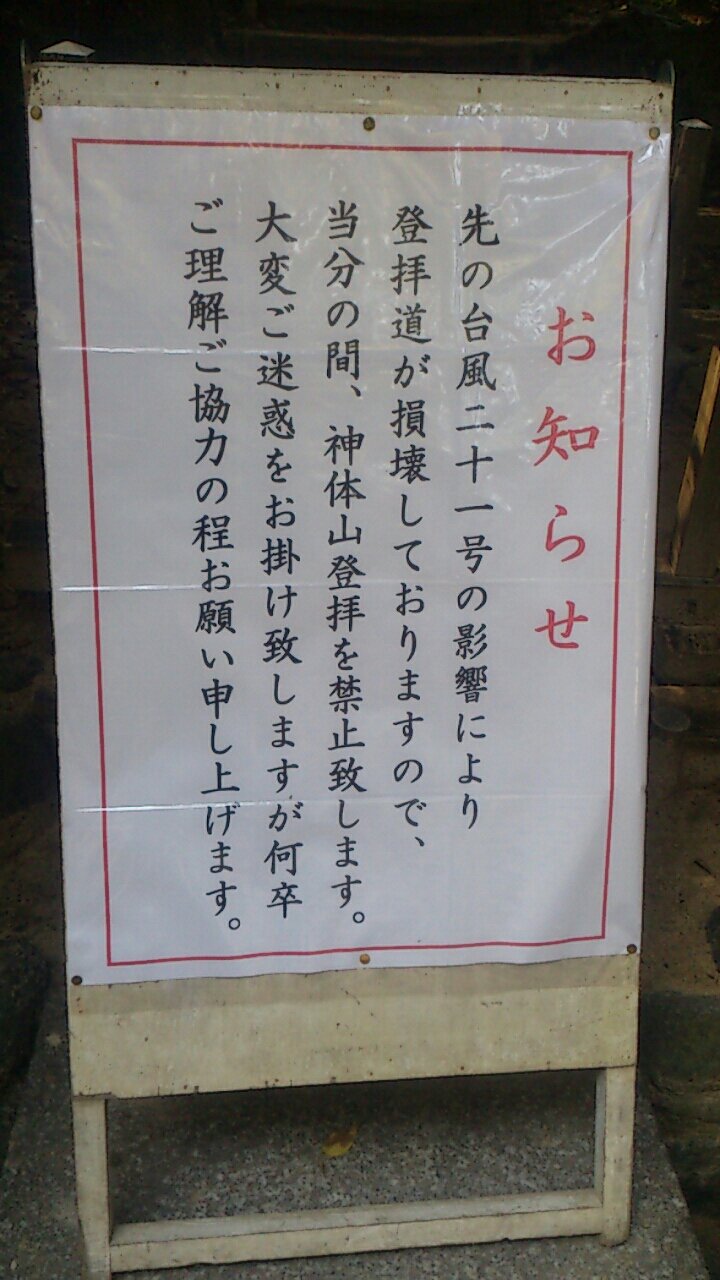 お知らせ
先の台風二十一号の影響により
登拝道が損壊しておりますので、
当分の間、神体山登拝を禁止致します。
大変ご迷惑をお掛け致しますが何卒
ご理解ご協力の程お願い申し上げます。